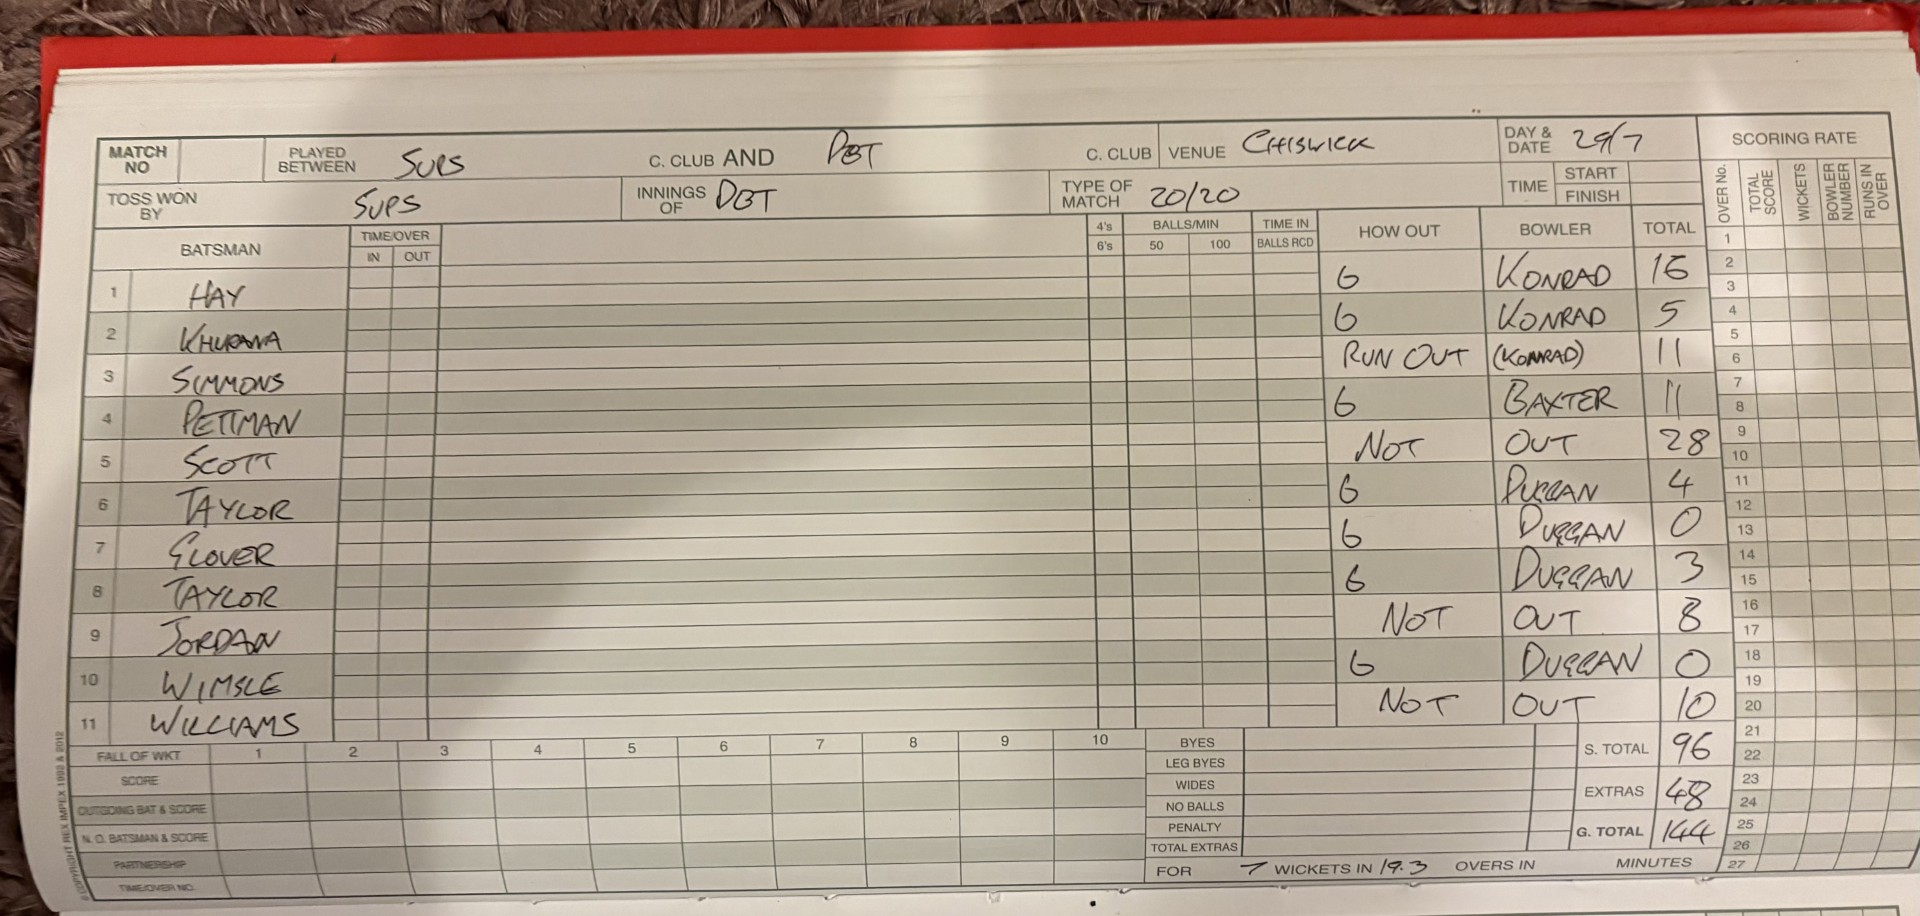 MATCH NO PLAYED BETWEEN SUPS C. CLUB AND DBT C. CLUB VENUE CHISWICK DAY & DATE 29/7 SCORING RATE
TOSS WON BY SUPS INNINGS OF DBT TYPE OF MATCH 20/20 TIME START FINISH
OVER No. TOTAL SCORE WICKETS BOWLER NUMBER RUNS IN OVER
BATSMAN TIME/OVER IN OUT 4's 6's BALLS/MIN 50 100 TIME IN BALLS RCD HOW OUT BOWLER TOTAL
1 HAY 6 KONRAD 16
2 KHURANA 6 KONRAD 5
3 SIMMONS RUN OUT (KONRAD) 11
4 PETTMAN 6 BAXTER 11
5 SCOTT NOT OUT 28
6 TAYLOR 6 DUGGAN 4
7 GLOVER 6 DUGGAN 0
8 TAYLOR 6 DUGGAN 3
9 JORDAN NOT OUT 8
10 WIMSLE 6 DUGGAN 0
11 WILLIAMS NOT OUT 10
FALL OF WKT 1 2 3 4 5 6 7 8 9 10 BYES S. TOTAL 96
SCORE LEG BYES
OUTGOING BAT & SCORE WIDES EXTRAS 48
N. O. BATSMAN & SCORE NO BALLS
PARTNERSHIP PENALTY G. TOTAL 144
TIME/OVER NO. TOTAL EXTRAS
FOR 7 WICKETS IN 19.3 OVERS IN MINUTES
1
2
3
4
5
6
7
8
9
10
11
12
13
14
15
16
17
18
19
20
21
22
23
24
25
26
27
© COPYRIGHT REX IMPEX 1993 & 2012